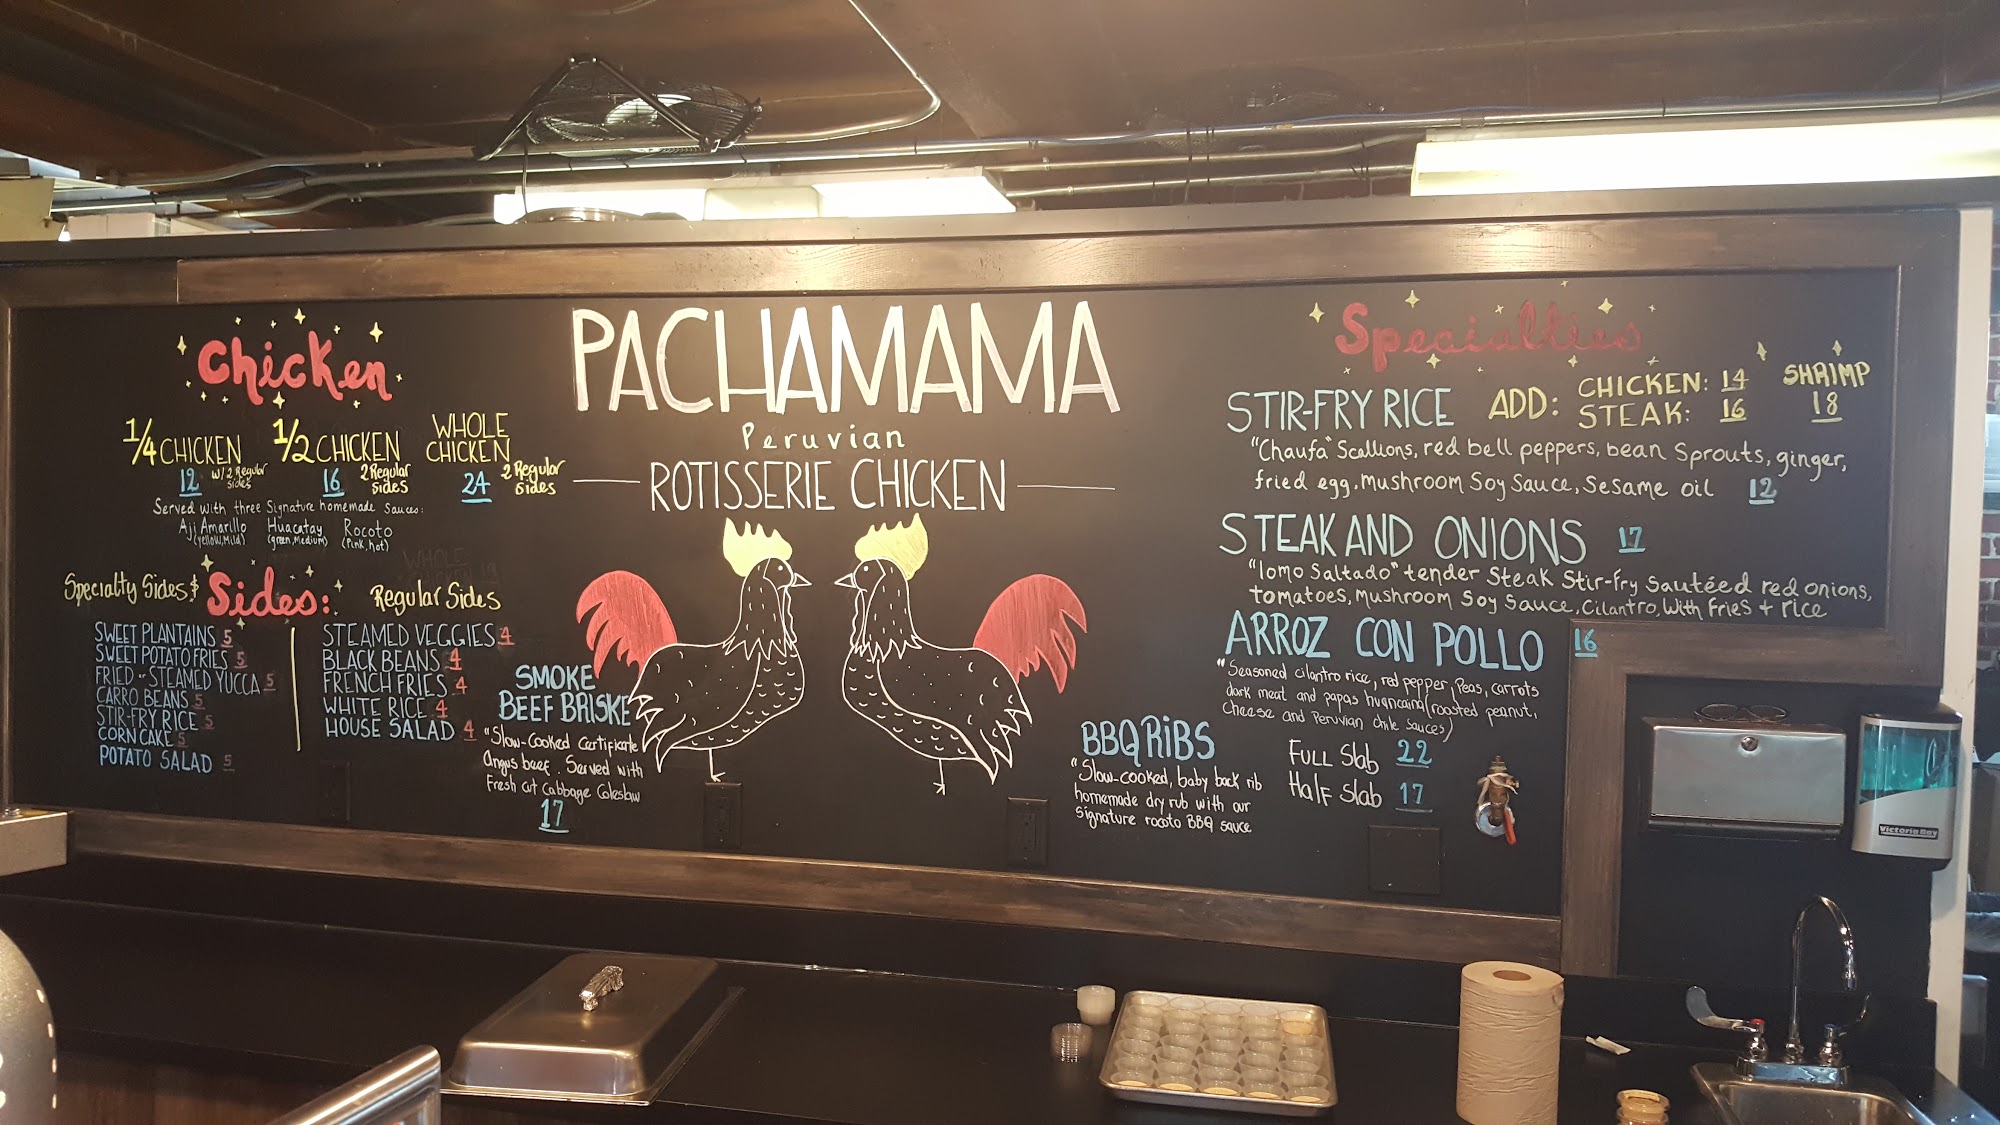 Chicken
1/4 CHICKEN
12 w/ 2 Regular sides
1/2 CHICKEN
16 2 Regular sides
WHOLE CHICKEN
24 2 Regular sides
Served with three Signature homemade Sauces:
Aji Amarillo (yellow, Mild)
Huacatay (green, Medium)
Rocoto (Pink, hot)
Specialty Sides &
Sides:
SWEET PLANTAINS 5
SWEET POTATO FRIES 5
FRIED or STEAMED YUCCA 5
CARRO BEANS 5
STIR-FRY RICE 5
CORN CAKE 5
POTATO SALAD 5
Regular Sides
STEAMED VEGGIES 4
BLACK BEANS 4
FRENCH FRIES 4
WHITE RICE 4
HOUSE SALAD 4
SMOKE
BEEF BRISKE
"Slow-Cooked certificate
Angus beef. Served with
Fresh cut Cabbage Coleslaw
17
PACHAMAMA
Peruvian
ROTISSERIE CHICKEN
BBQ RiBS
"Slow-cooked, baby back rib
homemade dry rub with our
signature rocoto BBQ sauce
Full Slab 22
Half Slab 17
Specialties
STIR-FRY RICE ADD: CHICKEN: 14
STEAK: 16
SHRIMP
18
"Chaufa" Scallions, red bell peppers, bean Sprouts, ginger,
fried egg, mushroom Soy Sauce, Sesame oil 12
STEAK AND ONIONS 17
"lomo Saltado" tender Steak Stir-fry Sautéed red onions,
tomatoes, mushroom Soy Sauce, Cilantro, With Fries + rice
ARROZ CON POLLO 16
"Seasoned cilantro rice, red pepper, Peas, carrots
dark meat and papas huancaina (roasted peanut,
Cheese and Peruvian chile Sauces)
Victoria Bay